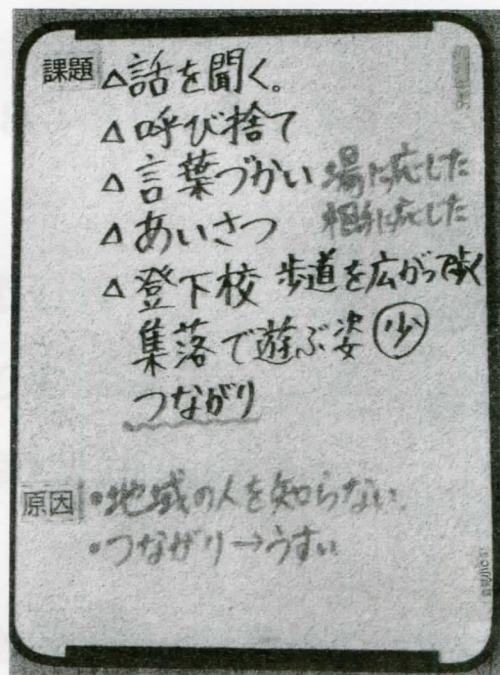 課題 △話を聞く。
△呼び捨て
△言葉づかい 場に応じた
相手に応じた
△あいさつ
△登下校 歩道を広がって歩く
集落で遊ぶ姿 少
つながり
原因 ・地域の人を知らない。
・つながり→うすい